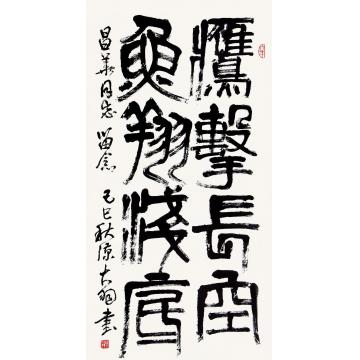 鷹擊長空
魚翔淺底
昌華同志留念 己巳秋陳大羽書